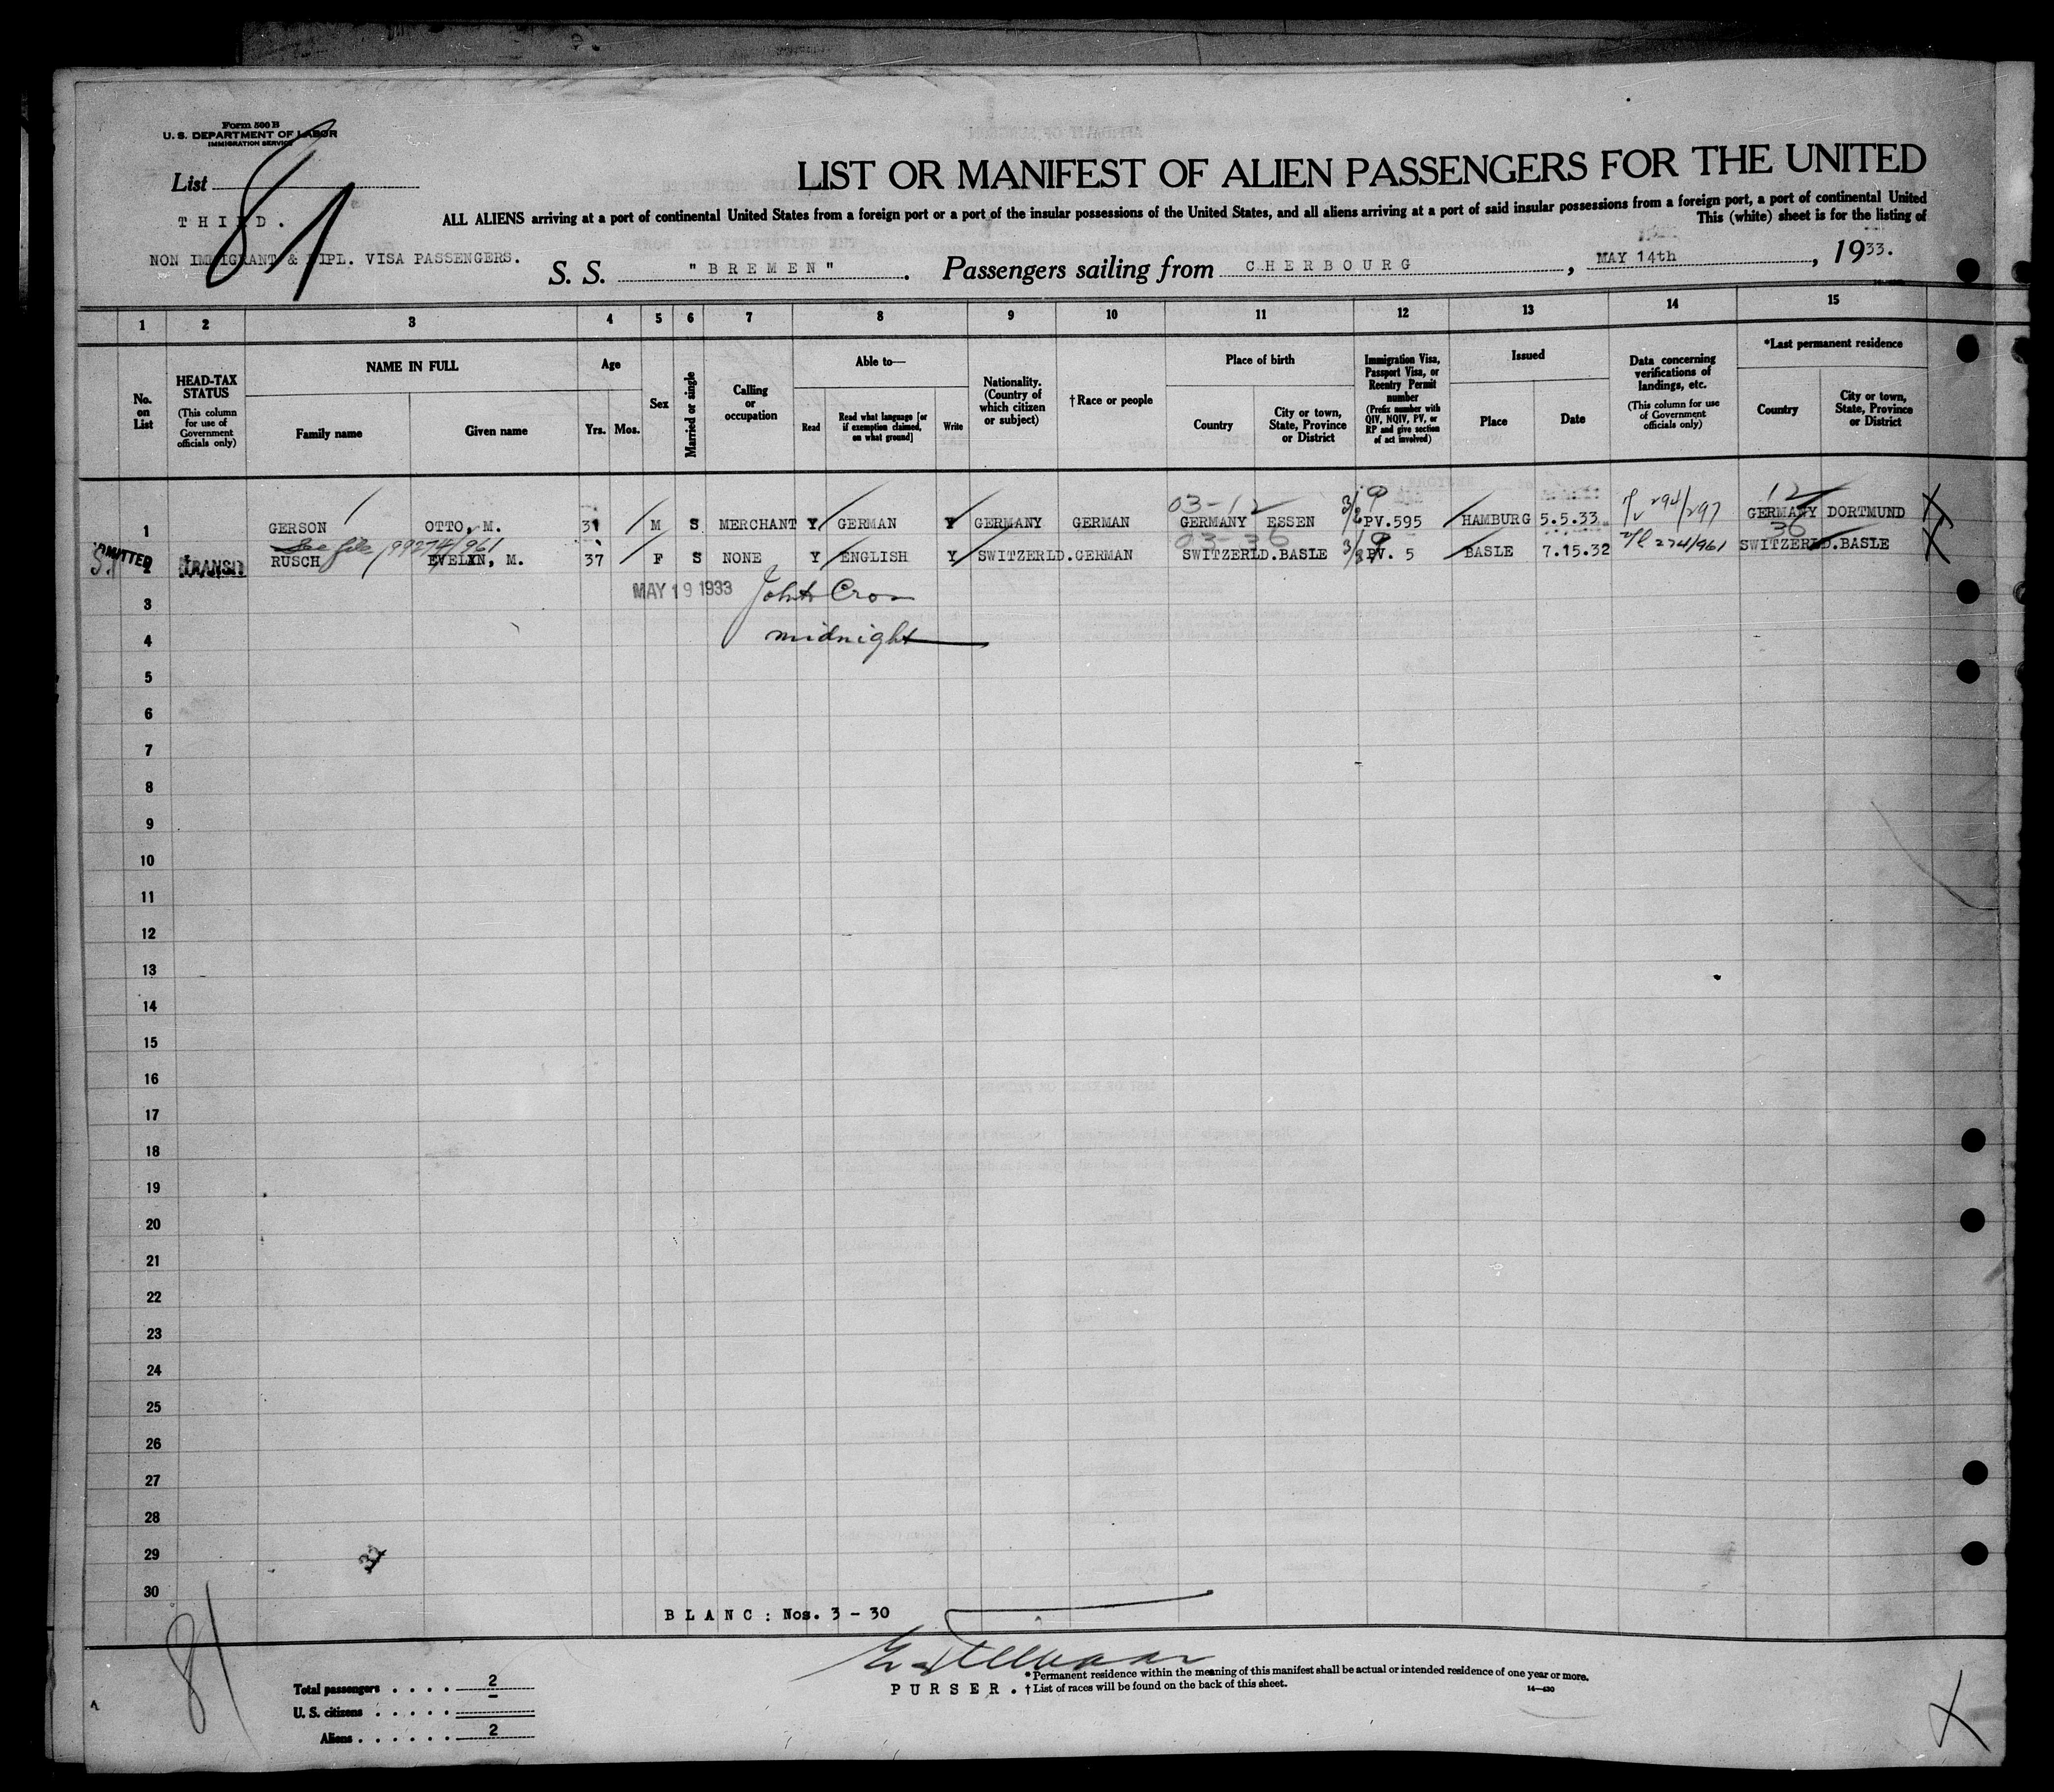 Form 500 B
U. S. DEPARTMENT OF LABOR
IMMIGRATION SERVICE
List
81
THIRD.
NON IMMIGRANT & DIPL. VISA PASSENGERS.
LIST OR MANIFEST OF ALIEN PASSENGERS FOR THE UNITED
ALL ALIENS arriving at a port of continental United States from a foreign port or a port of the insular possessions of the United States, and all aliens arriving at a port of said insular possessions from a foreign port, a port of continental United
This (white) sheet is for the listing of
S. S. "BREMEN". Passengers sailing from CHERBOURG, MAY 14th, 1933.
1 2 3 4 5 6 7 8 9 10 11 12 13 14 15
No. on List
HEAD-TAX STATUS
(This column for use of Government officials only)
NAME IN FULL
Family name
Given name
Age
Yrs. Mos.
Sex
Married or single
Calling or occupation
Able to—
Read
Read what language [or if exemption claimed, on what ground]
Write
Nationality. (Country of which citizen or subject)
†Race or people
Place of birth
Country
City or town, State, Province or District
Immigration Visa, Passport Visa, or Reentry Permit number
(Prefix number with QIV, NQIV, PV, or RP and give section of act involved)
Issued
Place
Date
Data concerning verifications of landings, etc.
(This column for use of Government officials only)
*Last permanent residence
Country
City or town, State, Province or District
03-12 12
1 GERSON OTTO, M. 31 M S MERCHANT Y GERMAN Y GERMANY GERMAN GERMANY ESSEN 3/2 PV.595 HAMBURG 5.5.33 294/297 GERMANY DORTMUND X
See file 99274/961 03-36 36
ADMITTED 2 TRANSIT RUSCH EVELYN, M. 37 F S NONE Y ENGLISH Y SWITZERLD. GERMAN SWITZERLD. BASLE PV. 5 BASLE 7.15.32 274/961 SWITZERLD. BASLE X
3 MAY 19 1933
4 midnight
5
6
7
8
9
10
11
12
13
14
15
16
17
18
19
20
21
22
23
24
25
26
27
28
29
30
BLANC: Nos. 3 - 30
81
Total passengers . . . . 2
U. S. citizens . . . . . –
Aliens . . . . . . 2
PURSER.
* Permanent residence within the meaning of this manifest shall be actual or intended residence of one year or more.
† List of races will be found on the back of this sheet.
14—430
X